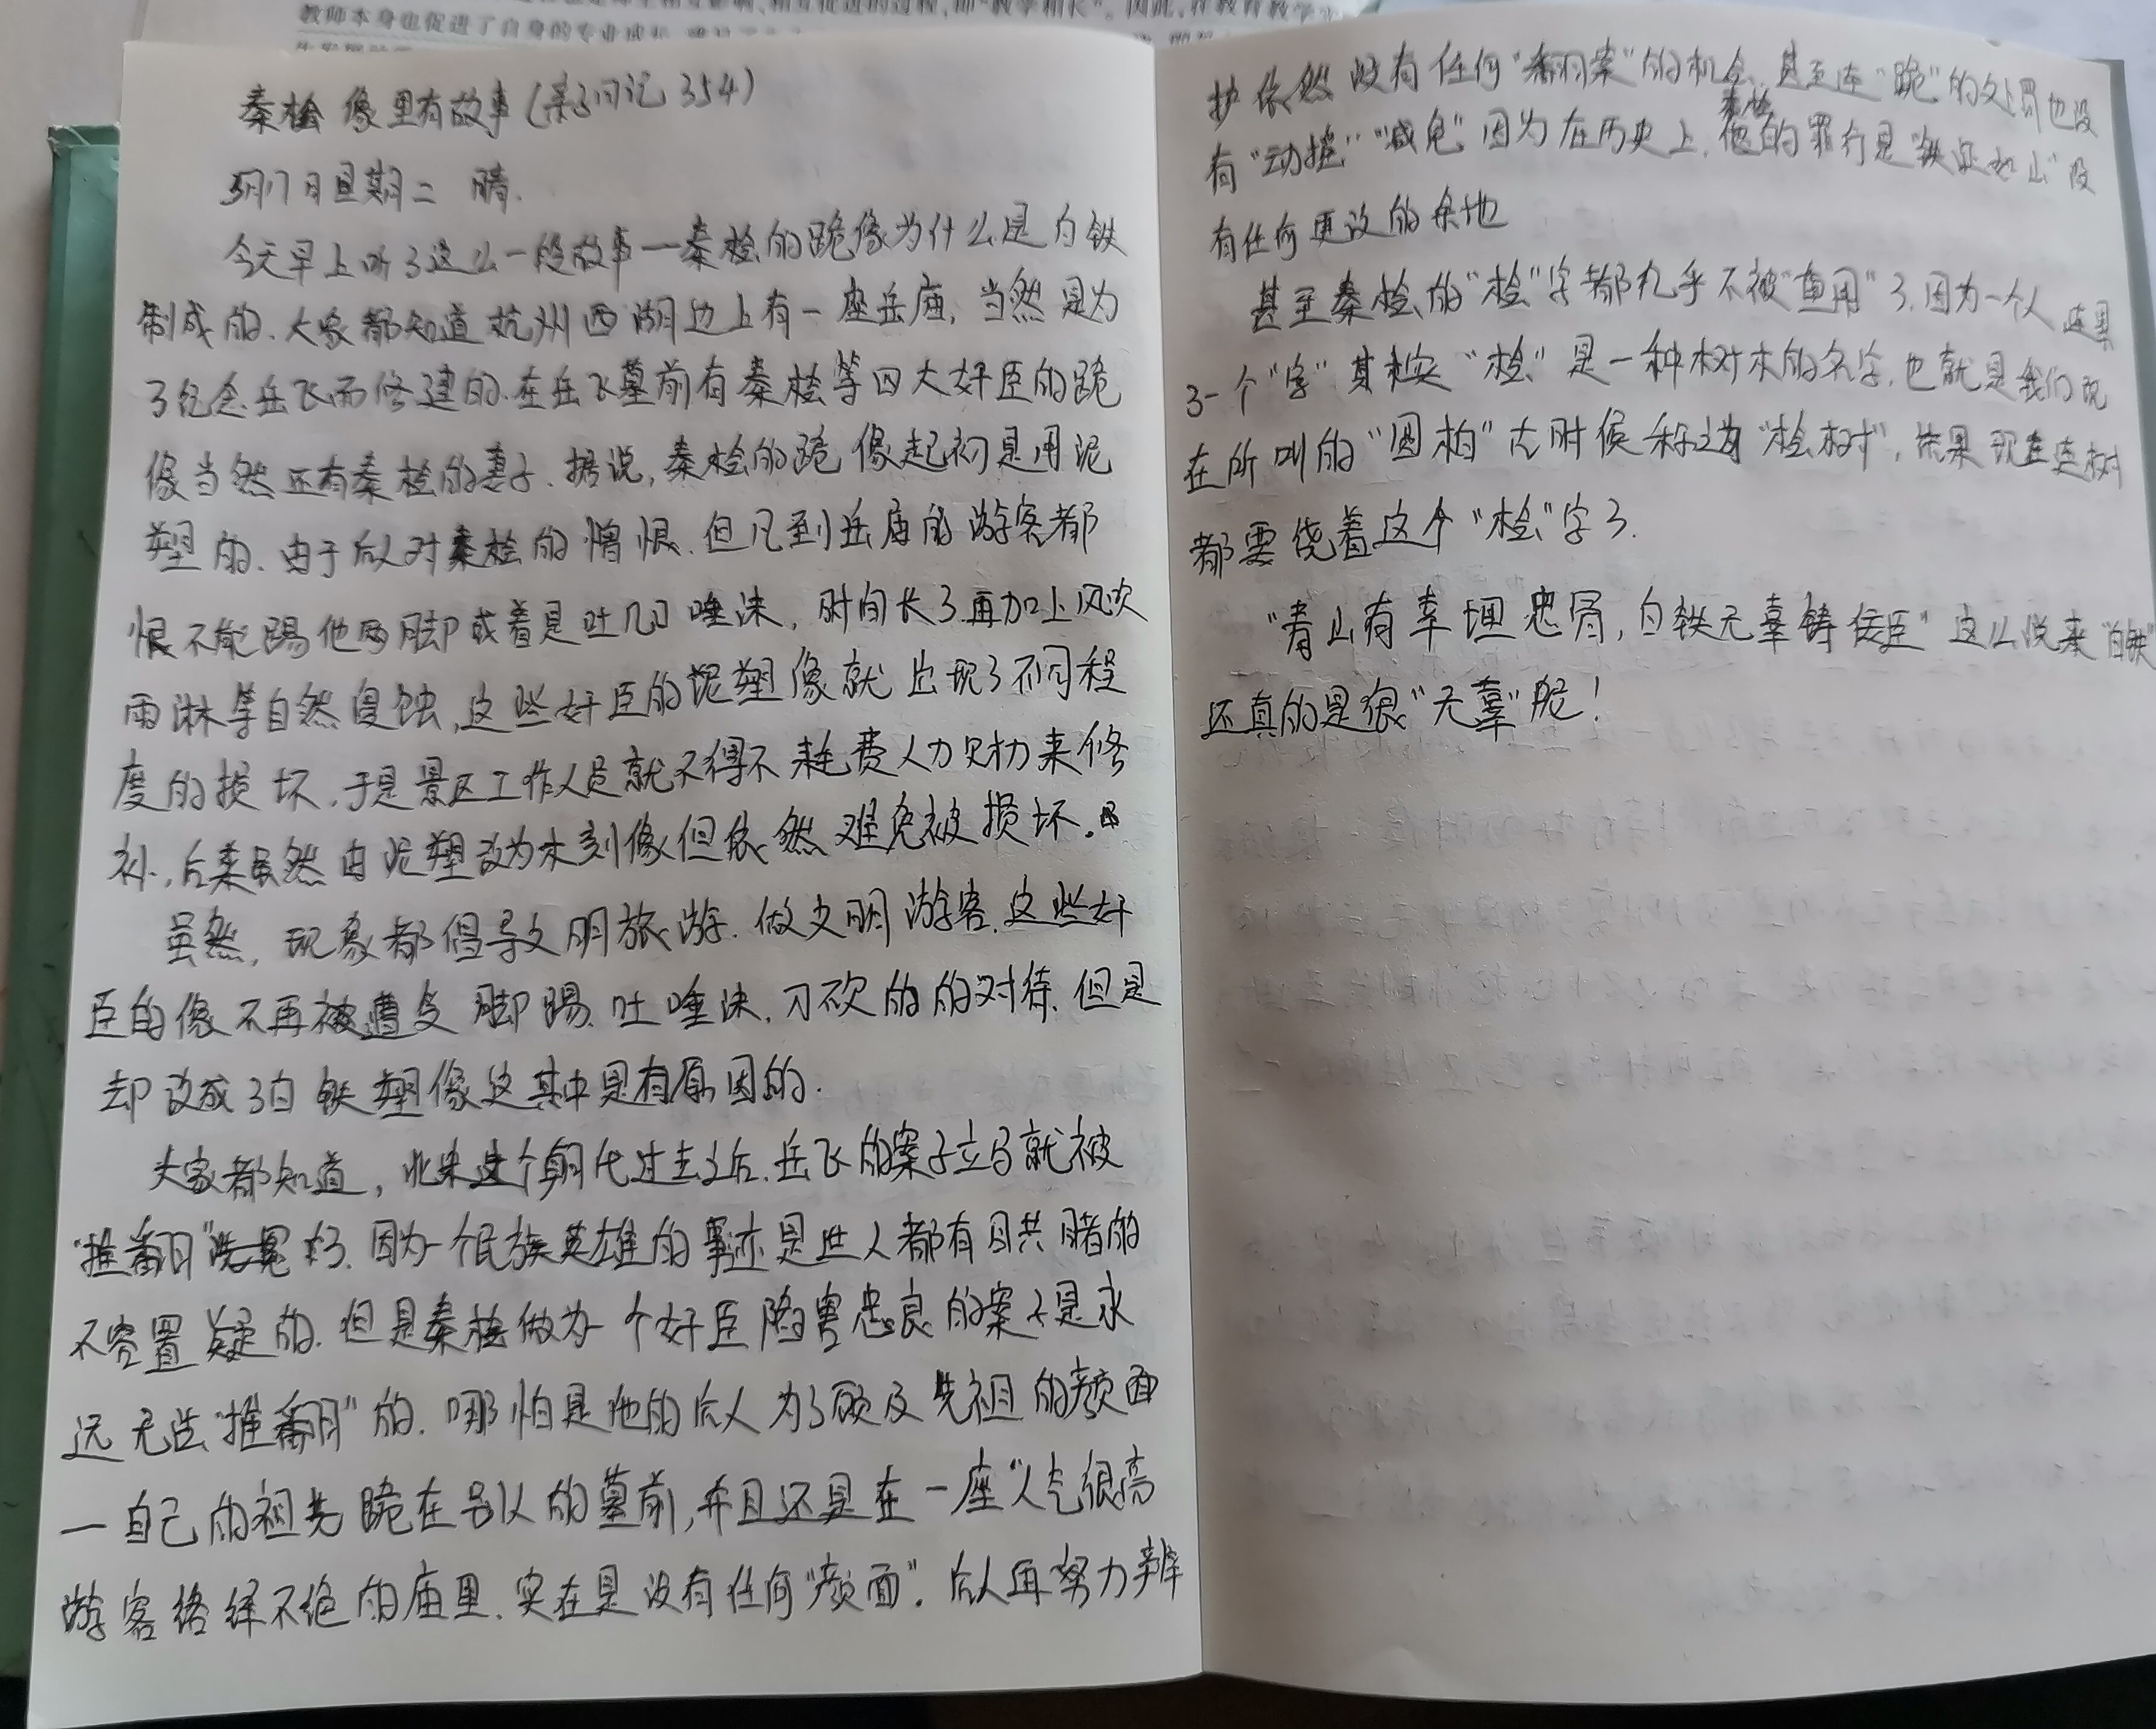 教师本身也促进了自身的专业成长
秦桧像里有故事(亲子日记354)
5月17日星期二 晴.
今天早上听了这么一段故事一秦桧的跪像为什么是白铁
制成的.大家都知道杭州西湖边上有一座岳庙,当然是为
了纪念岳飞而修建的.在岳飞墓前有秦桧等四大奸臣的跪
像当然还有秦桧的妻子.据说,秦桧的跪像起初是用泥
塑的.由于后人对秦桧的憎恨.但凡到岳庙的游客都
恨不能踢他两脚或着是吐几口唾沫,时间长了再加上风吹
雨淋等自然侵蚀,这些奸臣的泥塑像就出现了不同程
度的损坏.于是景区工作人员就不得不耗费人力财力来修
补.后来虽然由泥塑改为木刻像但依然难免被损坏.
虽然,现象都倡导文明旅游.做文明游客.这些奸
臣的像不再被遭受脚踢.吐唾沫.刀砍的的对待.但是
却改成了白铁塑像这其中是有原因的.
大家都知道,北宋这个朝代过去之后.岳飞的案子立马就被
"推翻"洗冤了.因为一个民族英雄的事迹是世人都有目共睹的
不容置疑的.但是秦桧做为一个奸臣陷害忠良的案子是永
远无法"推翻"的.哪怕是他的后人为了顾及先祖的颜面
一自己的祖先跪在别人的墓前,并且还是在一座"人气很高
游客络绎不绝的庙里.实在是没有任何"颜面".后人再努力辨
护依然没有任何"翻案"的机会.甚至连"跪"的处罚也没
有"动摇""减免"因为在历史上,秦桧他的罪行是"铁证如山"没
有任何更改的余地
甚至秦桧的"桧"字都几乎不被"重用"了.因为一个人连累
了一个"字"其实"桧"是一种树木的名字.也就是我们现
在所叫的"圆柏"古时候称之为"桧树",结果现在连树
都要绕着这个"桧"字了.
"青山有幸埋忠骨,白铁无辜铸佞臣"这么说来"白铁"
还真的是很"无辜"呢!